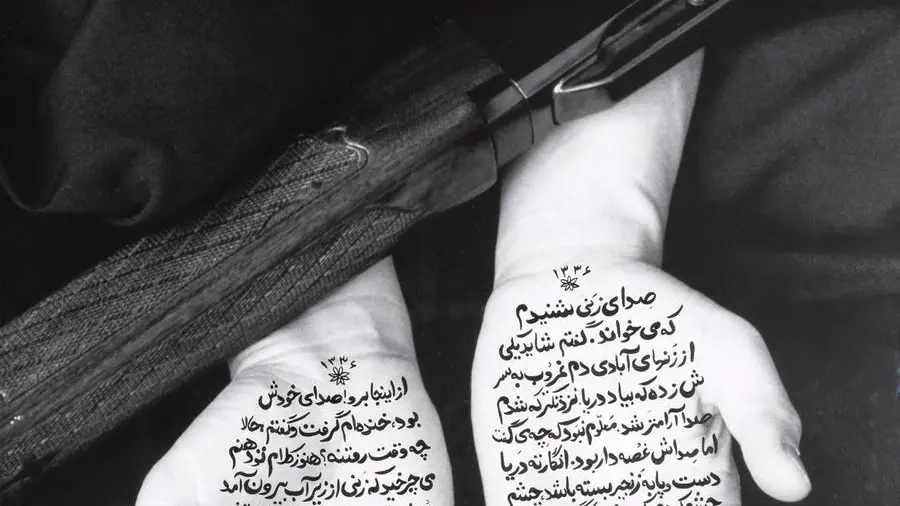 ۱۳۳۶
صدای زنی شنیدم
که می خواند. گفتم شاید یکی
از زنهای آبادی دم غروب به سر
ش زده که بیاد دریا. نزدیکتر که شدم
صدا آرامتر شد. معلوم نبود که چه می گفت
اما صداش غصه دار بود. انگار ته دریا
دست و پایه زنجیر بسته باشد، چشم
۱۳۳۶
از اینجا برو! صدای خودش
بود، خنده ام گرفت و گفتم حالا
چه وقت رفتنه؟ هنوز کلام تو دهنم
می چرخید که زنی از زیر آب بیرون آمد